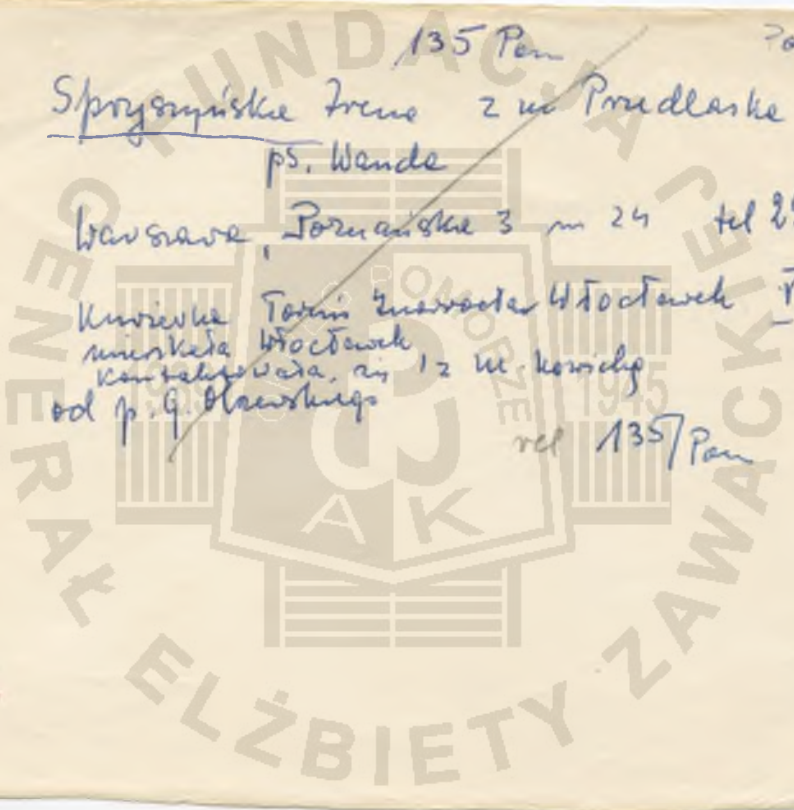 135 Pom
Spryszyńska Irena z m Prudlaska
ps. Wanda
Warszawa, Poznańska 3 m 24 tel 2
Kurierka Toruń Inowrocław Włocławek
mieszkała Włocławek
kontaktowała się z
od p. G. Olszewskiego
rel 135/Pom
FUNDACJA
GENERAŁ ELŻBIETY ZAWACKIEJ
POMORZE
1945
AK